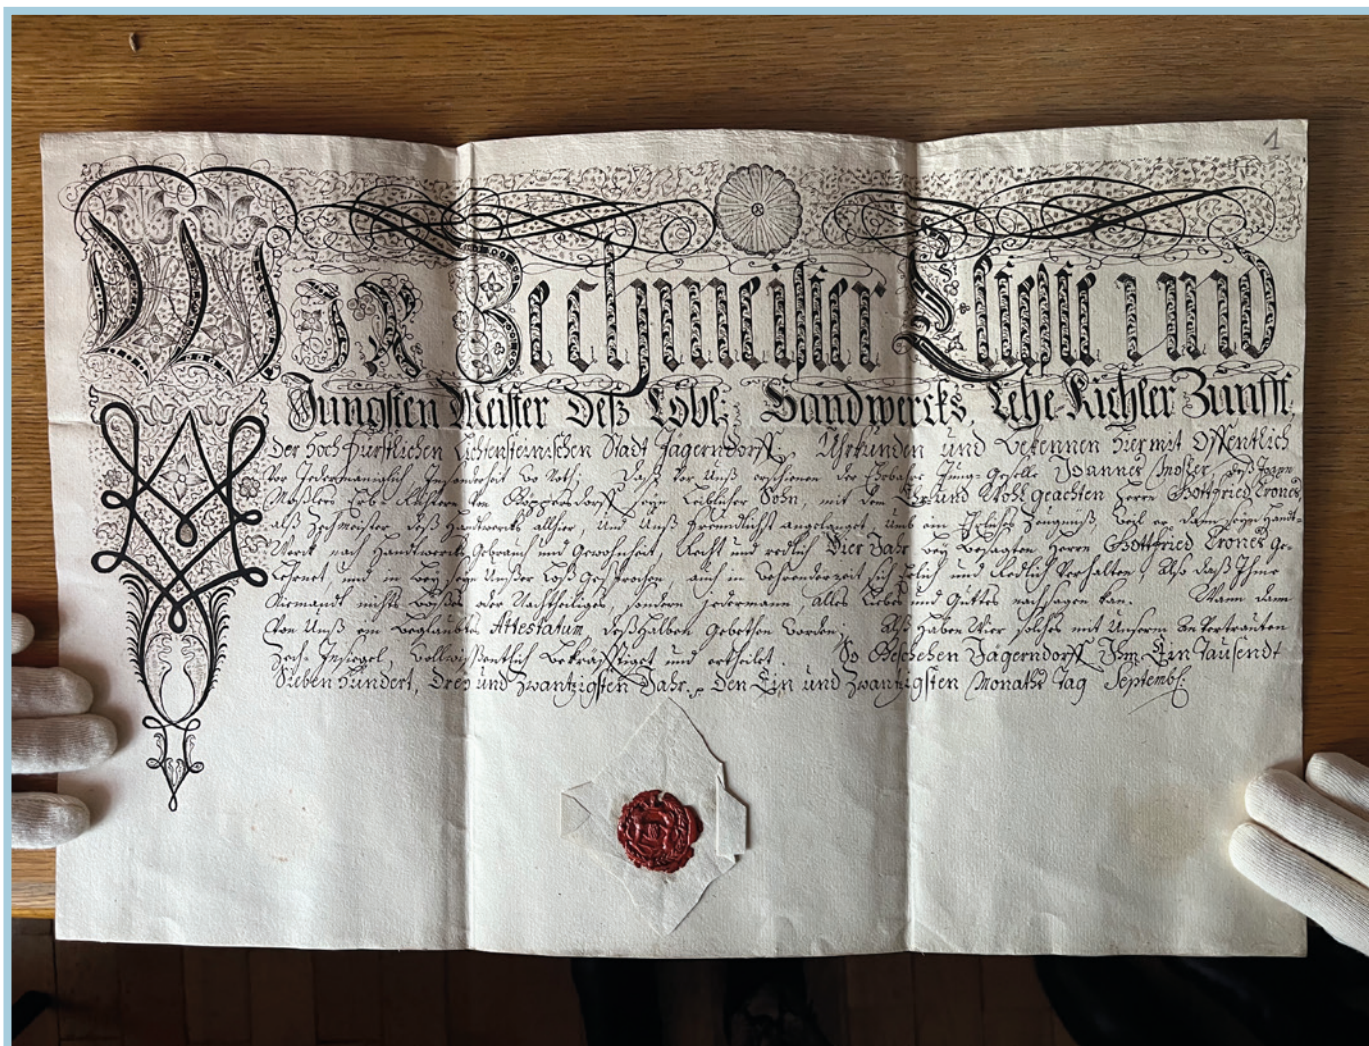 1
Wir Zechmeister Elteste und
Jungsten Meister Deß Löbl: Handwercks, Lehe-Kichler Zunfft
Der Hoch Fürstlichen Lichtensteinischen Stadt Jägerndorff, Uhrkunden und Bekennen hiermit Offentlich
Vor Jedermanniglich Insonderheit Noth; Daß Vor Unß erschienen der Ehrbahre Jung-Geselle Joannes Moßler, deß
Moßlers Erb Richters Von Seyn Leiblicher Sohn, mit dem Ehr und Wohl geachten Herrn Gottfried Krones,
alß Zechmeister Deß Handwercks allhier, Und Unß gründlichst angelanget, Umb ein Ehrliches Zeugnuß, Weil er dann seyn Handt-
Werck nach Handtwercks Gebrauch und Gewohnheit, Recht und redlich Vier Jahr bey Besagten Herrn Gottfried Krones ge-
Lehrnet, und in bey seyn Unßer Loß gesprochen, auch in Wehrender Zeit sich Ehrlich und Redlich Verhalten, Also daß Ihme
Niemandt nichts Böses oder Nachtheiliges, sondern jedermann, alles Liebes und Guttes nachsagen kan. Wann dann
Von Unß ein Beglaubtes Attestatum deßhalben Gebethen Worden; Alß Haben Wier solches mit Unserm An Vertrauten
Zech-Insiegel, Wollwissentlich Bekräfftiget und ertheilet. So Geschehen Jägerndorff Im Ein Tausendt
Sieben Hundert, Drey und Zwantzigsten Jahr. Den Ein und Zwantzigsten Monaths Tag Septemb: